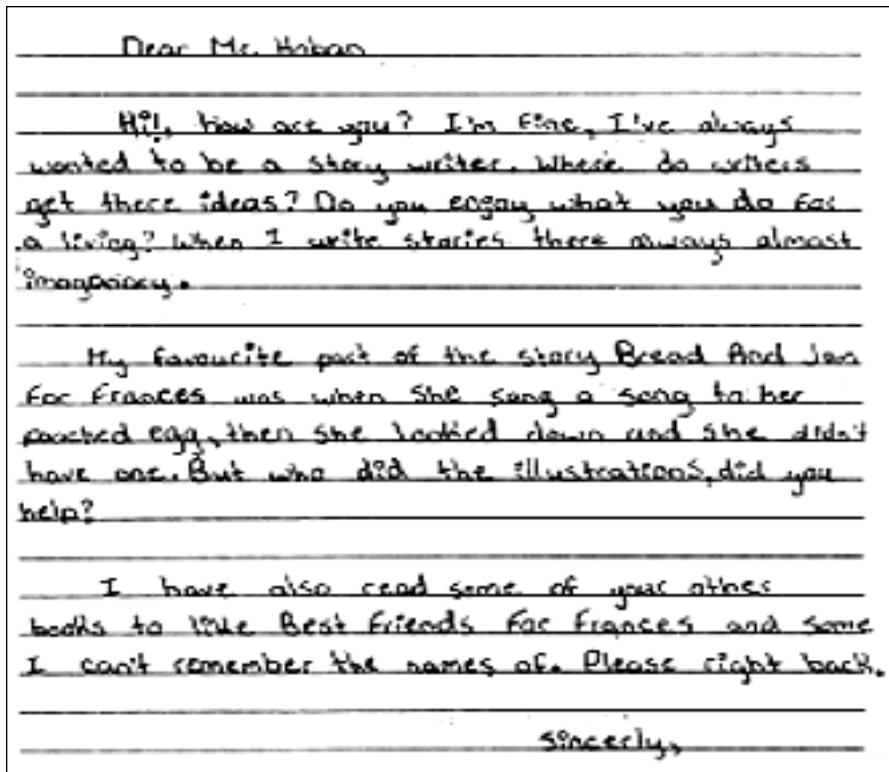 Dear Mr. Hoban
Hi!, how are you? I'm fine, I've always
wanted to be a story writer. Where do writers
get there ideas? Do you enjoy what you do for
a living? When I write stories there always almost
My favourite part of the story Bread And Jam
For Frances was when she sang a song to her
poached egg, then she looked down and she didn't
have one. But who did the illustrations, did you
help?
I have also read some of your other
books to like Best Friends For Frances and some
I can't remember the names of. Please right back.
Sincerly,